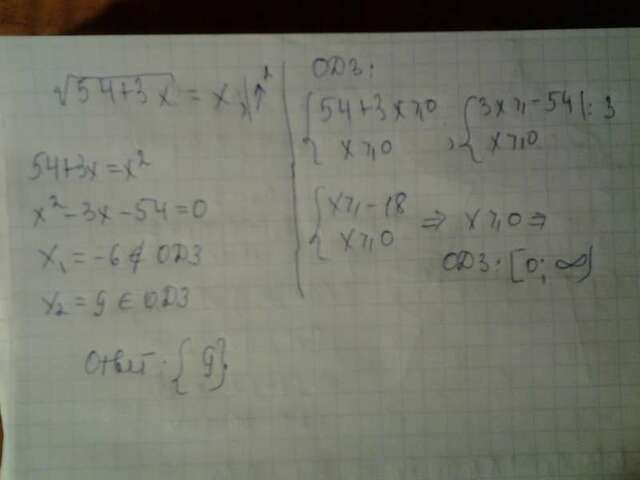 √54+3x = x |↑²
54+3x=x²
x²-3x-54=0
x₁=-6∉ОДЗ
x₂=9∈ОДЗ
Ответ: {9}
ОДЗ:
{54+3x⩾0 , {3x⩾-54 |:3
{x⩾0 {x⩾0
{x⩾-18
{x⩾0 ⇒ x⩾0 ⇒
ОДЗ: [0; ∞)